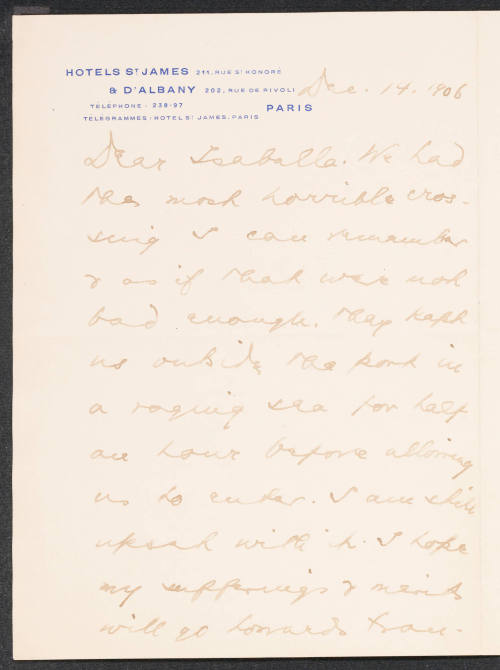 HOTELS ST JAMES 211, RUE ST HONORÉ
& D'ALBANY 202, RUE DE RIVOLI
TELEPHONE - 238-97
PARIS
TÉLÉGRAMMES: HOTEL ST JAMES. PARIS
Dec. 14. 1906
Dear Isaballa. We had
the most horrible cros-
sing I can remember
& as if that were not
bad enough. They kept
us outside the port in
a roging sea for half
an hour before allowing
us to enter. I am still
upset with it. I hope
my sufferings & merits
will go towards tran-